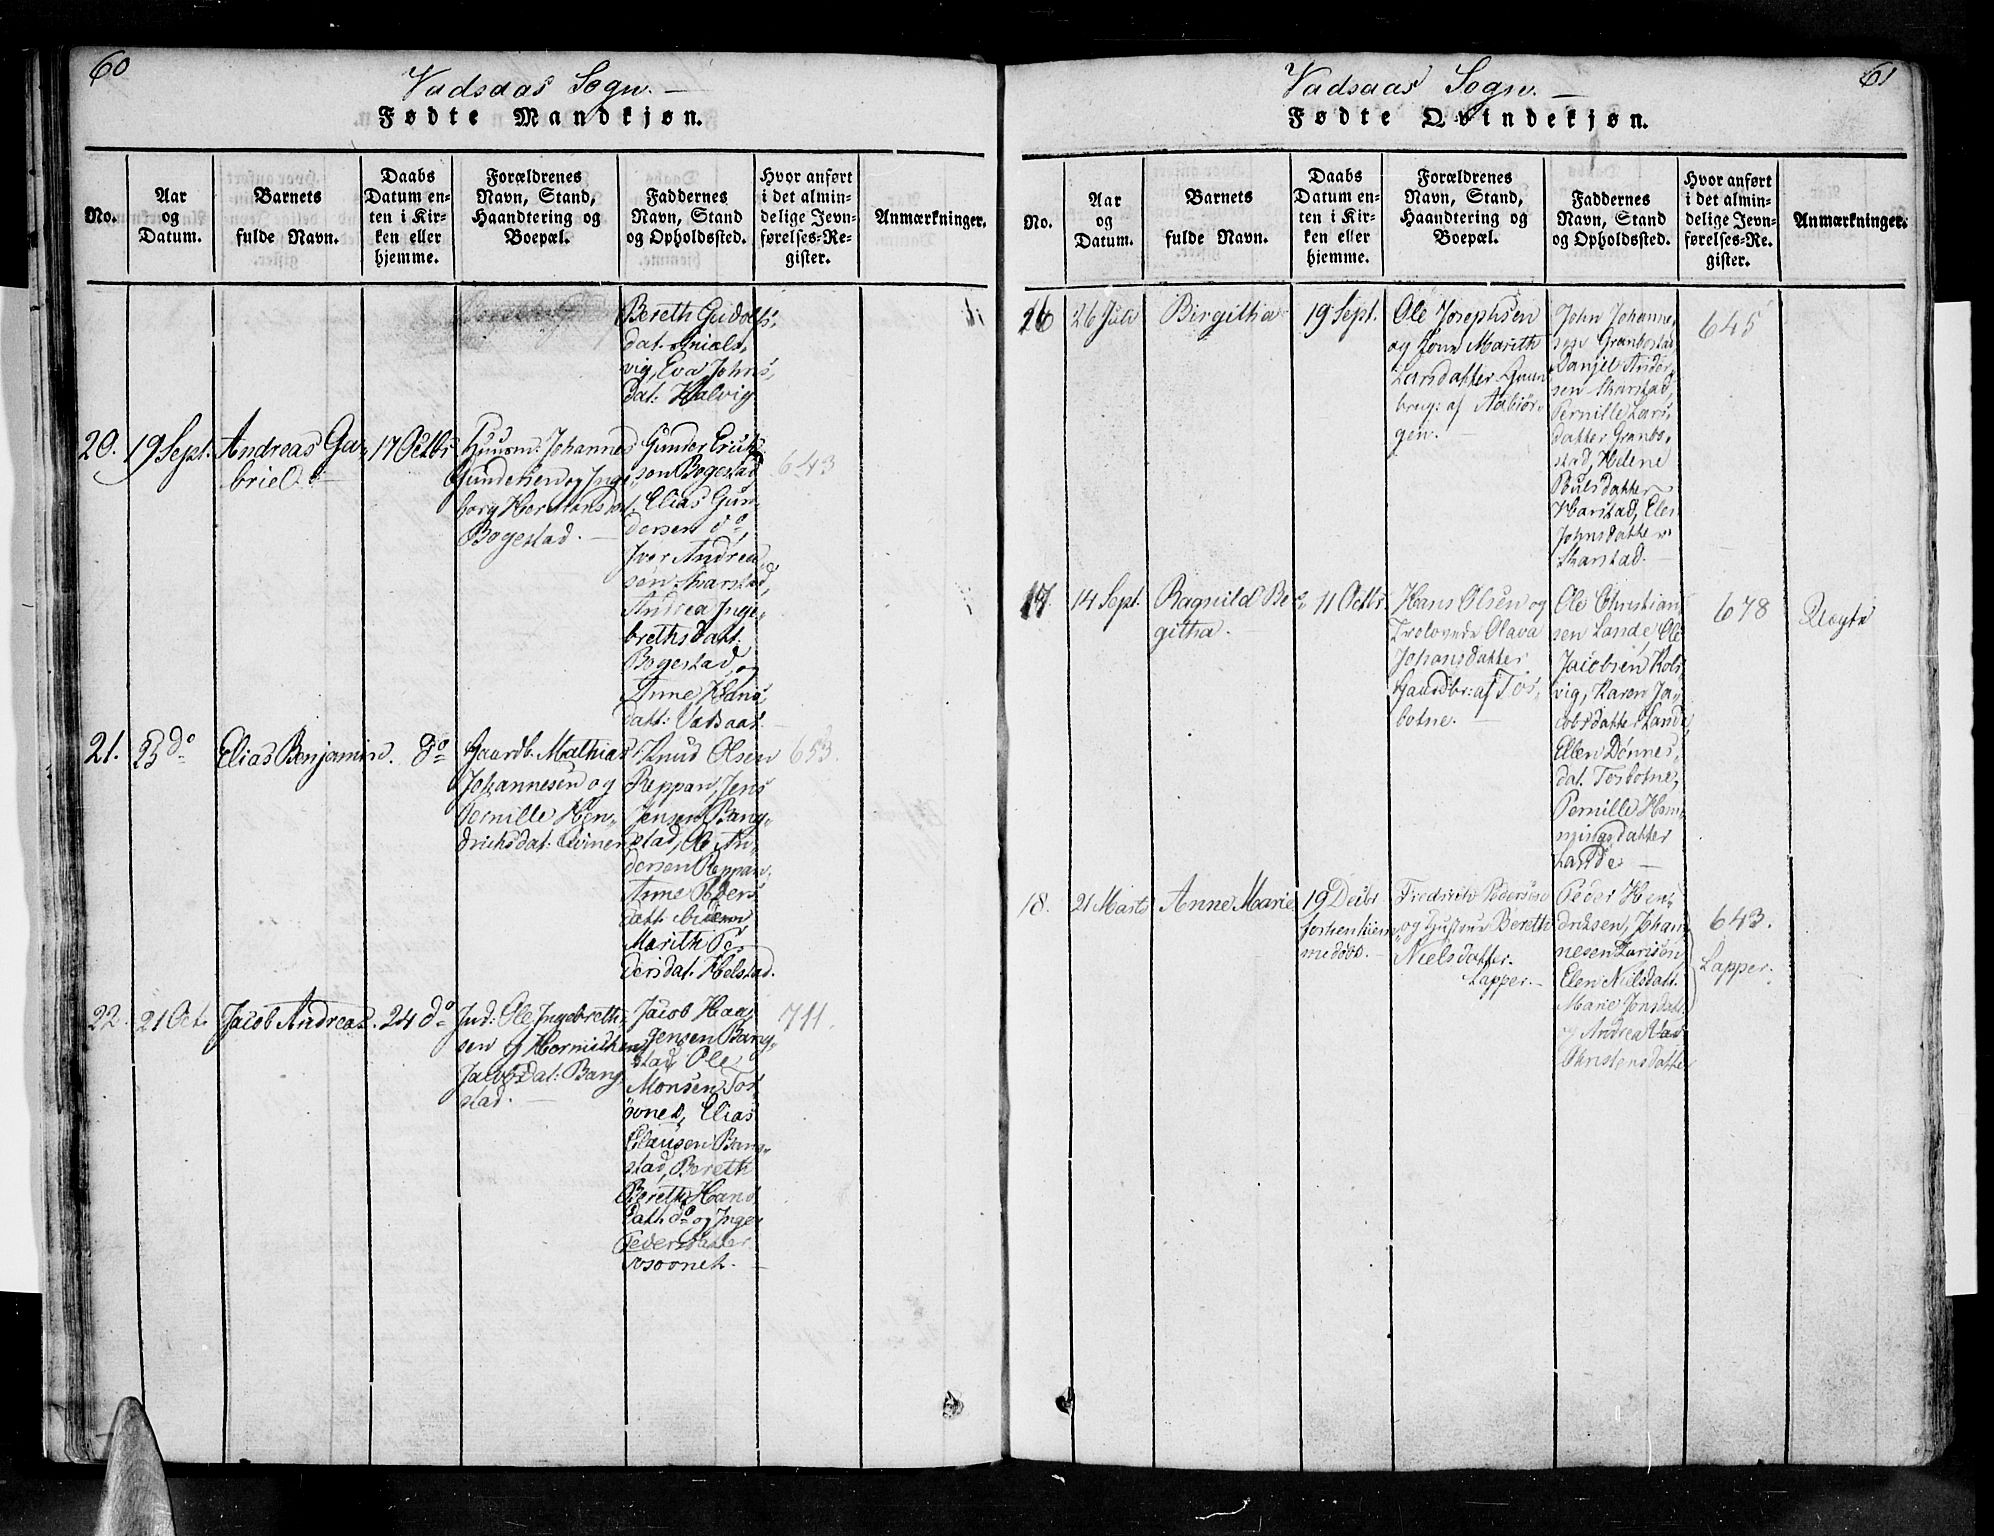 60
Vadsaas Sogn.
Fødte Mandkjøn.
No.
Aar
og
Datum.
Barnets
fulde Navn.
Daabs
Datum en-
ten i Kir-
ken eller
hjemme.
Forældrenes
Navn, Stand,
Haandtering og
Boepæl.
Faddernes
Navn, Stand
og Opholdssted.
Hvor anført
i det almin-
delige Jevn-
førelses-Re-
gister.
Anmærkninger.
Bereth Gudolfs
dat.
vig, Eva Johns
dat: Halvig
20.
19 Sept.
Andreas Ga-
briel
17 Octbr
Huusm: Johannes
Gundersen og Inge
borg Hermansdat
Bogestad.
Gunder Erich
sen Bogestad
Elias Gun-
dersen do,
Iver Andrea
sen Skarstad,
Andrea Inge-
brethsdatt.
Bogestad, og
Anne Hans
datt: Vadsaas
643
21.
23 do
Elias Benjamin.
do
Gaardb. Mathias
Johannesen og
Pernille Hen-
drichsdat:
Knud Olsen
Reppan, Jens
Jensen Bang-
stad, Ole An-
dersen Reppan,
Anne Peders
datt.
Marith Pe-
dersdat. Helstad.
653.
22.
21 Oct.
Jacob Andreas.
24 do
Ind: Ole Ingebreth-
sen og
Jacobsdat: Bang
stad.
Jacob Haa-
gensen Bang-
stad, Ole
Monsen
Elias
Clausen Bang-
stad, Bereth
Bereth Hans
dath. do og Inger
Pedersdatter
711.
61
Vadsaas Sogn.
Fødte Qvindekjøn.
No.
Aar
og
Datum.
Barnets
fulde Navn.
Daabs
Datum en-
ten i Kir-
ken eller
hjemme.
Forældrenes
Navn, Stand,
Haandtering og
Boepæl.
Faddernes
Navn, Stand
og Opholdssted.
Hvor anført
i det almin-
delige Jevn-
førelses-Re-
gister.
Anmærkninger.
16
26 Juli
Birgitha
19 Sept.
Ole Josephsen
og Kone Marith
Larsdatter Gaar
brug: af Aabiør-
gen.
John Johanne-
sen Granbostad
Danjel Ander-
sen Skarstad,
Pernille Lars
datter Granbo-
stad, Helene
Poulsdatter
Harstad, Elen
Johnsdatter
Skarstad.
645
17.
14 Sept.
Ragnild Ber-
githa.
11 Octbr.
Hans Olsen og
Trolovede Olava
Johansdatter
Gaardbr: af Tos-
botne.
Ole Christian
sen Lande, Ole
Jacobsen Kols
vig, Karen Ja-
cobsdatter Lande,
Ellen Dønnes
dat. Tosbotne,
Pernille Hem-
mingsdatter
Lande
678
18.
21 Marts
Anne Marie
19 Decbr
forhen hiem-
medøbt.
Fredrich Pedersen
og Hustrue Bereth
Nielsdatter.
Lapper.
Peder Hen-
driksen, Johan-
nesen Larisen
Elen Nielsdatt.
Marie Jonsdatt.
og Andrea
Christensdatter
643.
Lapper.